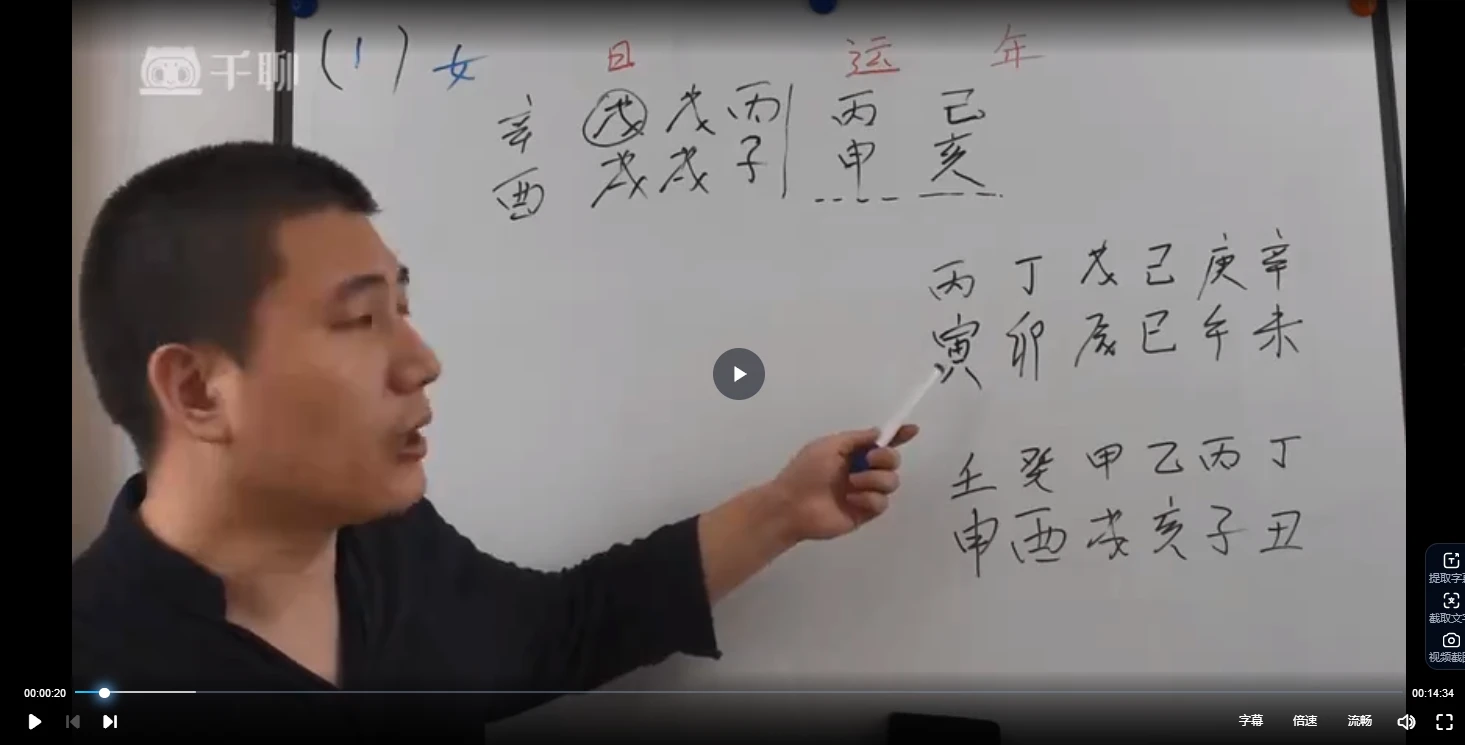 千聊
(1) 女 日 运 年
辛 戊 戊 丙 丙 己
酉 戌 戌 子 申 亥
丙 丁 戊 己 庚 辛
寅 卯 辰 巳 午 未
壬 癸 甲 乙 丙 丁
申 酉 戌 亥 子 丑
提取字
截取文
视频截
00:00:20 00:14:34
字幕 倍速 流畅